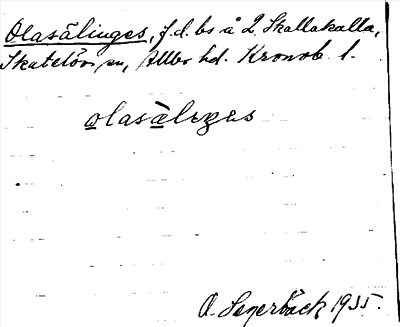 Olasälinges, f.d. bs å 2 Skallakalla,
Skatelövs sn, Allbo hd. Kronob. l.
olasàleŋes
O. Segerbäck 1935.